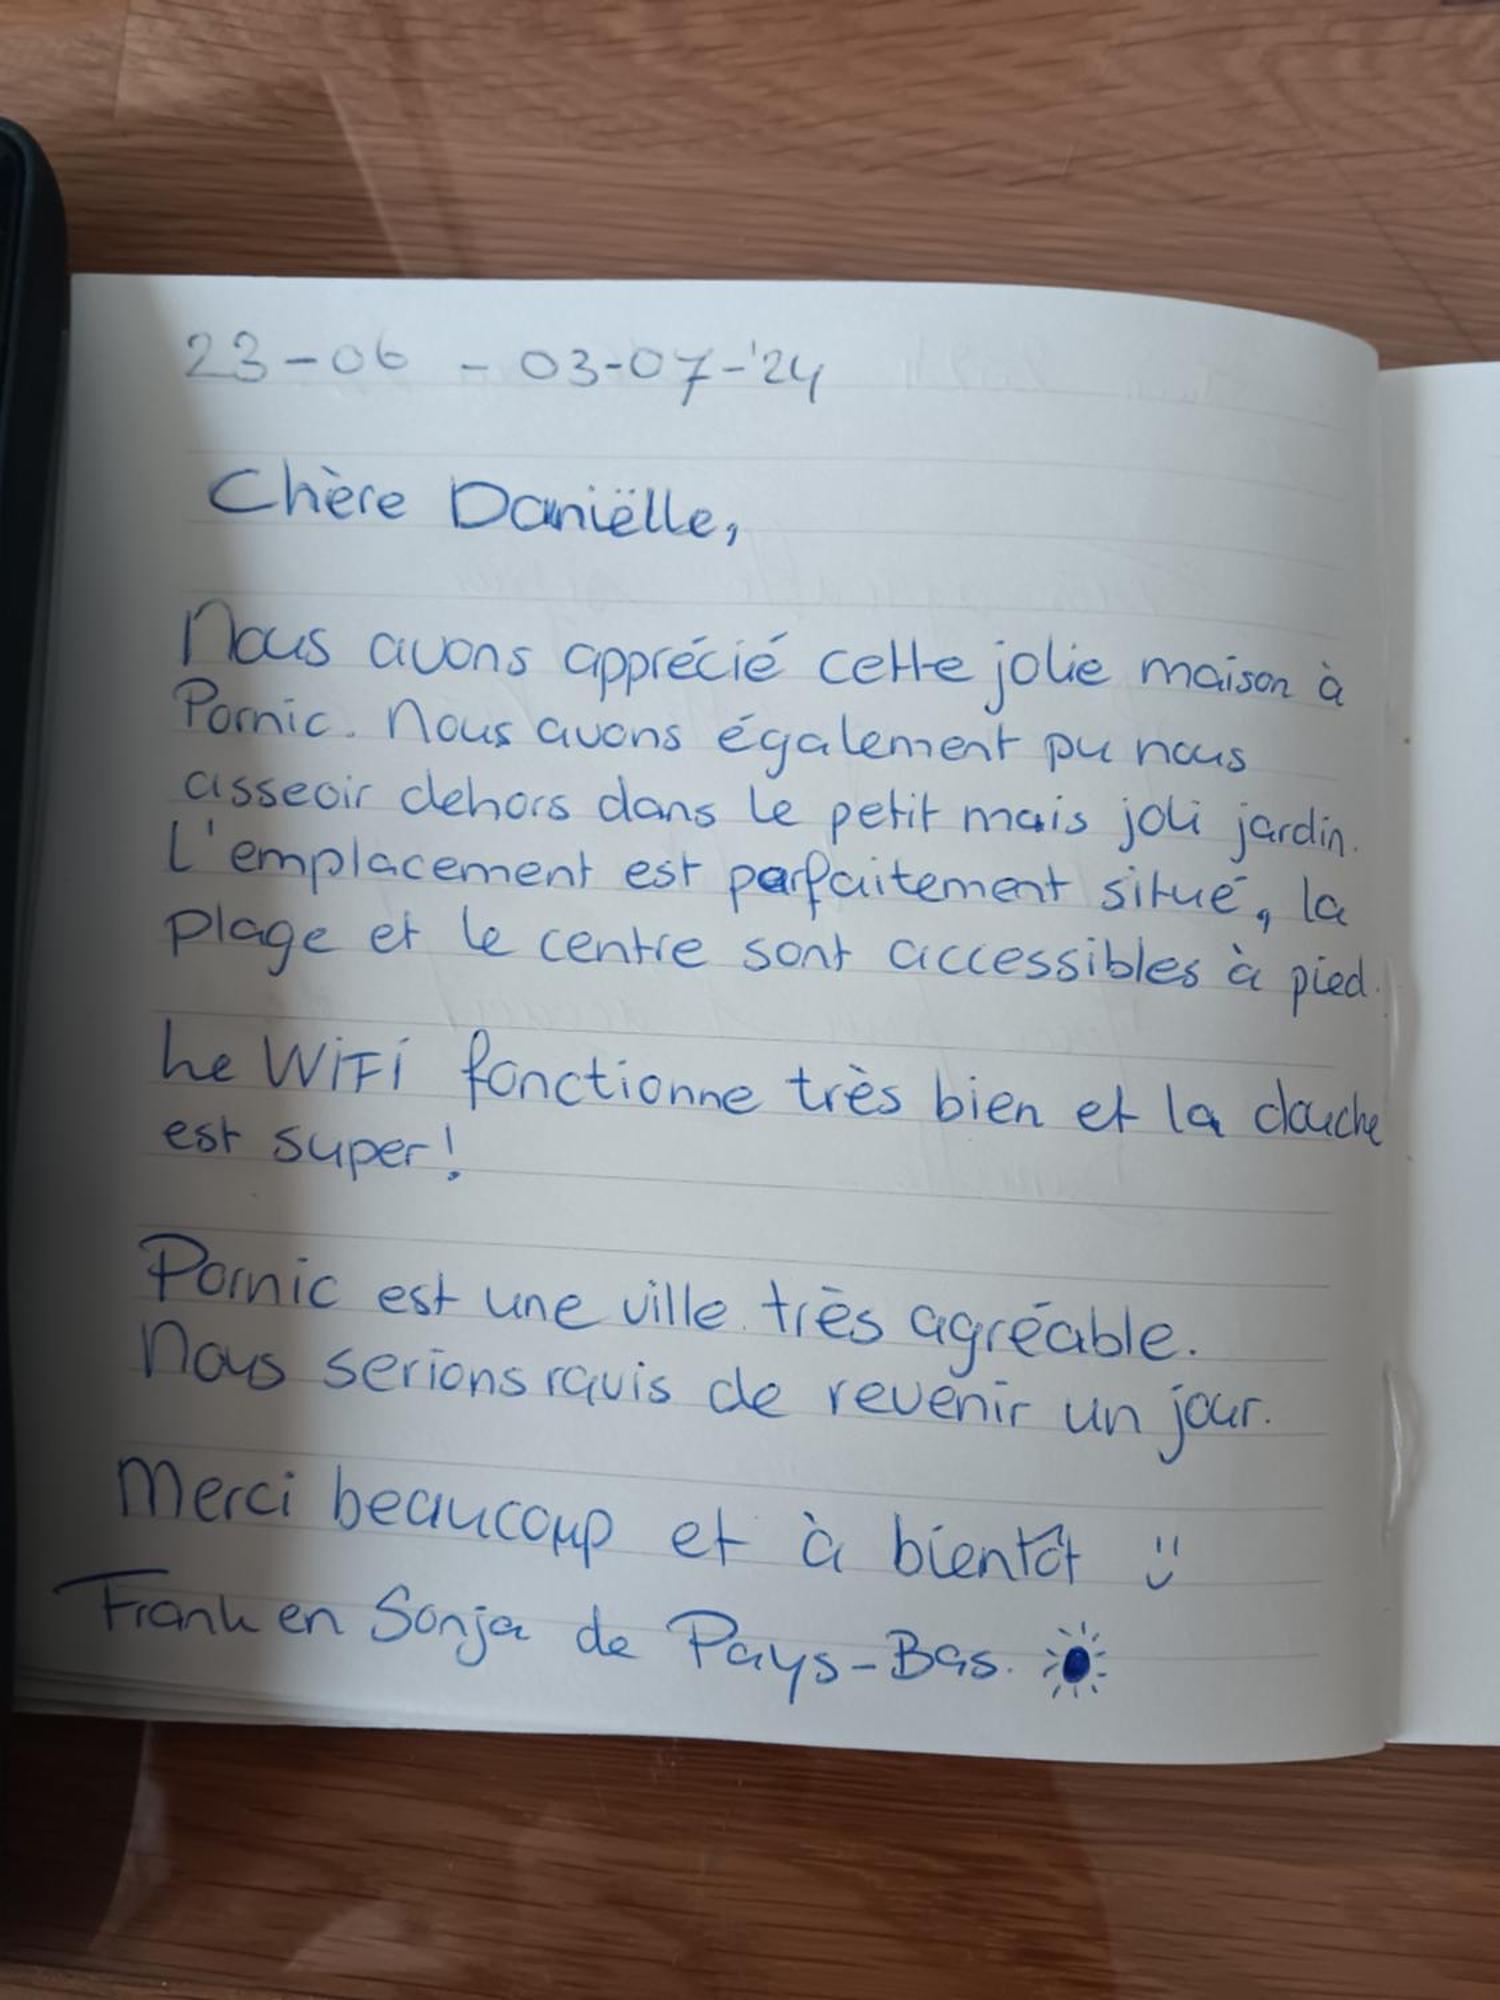 23-06 - 03-07-'24
Chère Daniëlle,
Nous avons apprécié cette jolie maison à
Pornic. Nous avons également pu nous
asseoir dehors dans le petit mais joli jardin.
L'emplacement est parfaitement situé, la
plage et le centre sont accessibles à pied.
Le WiFi fonctionne très bien et la douche
est super!
Pornic est une ville très agréable.
Nous serions ravis de revenir un jour.
Merci beaucoup et à bientôt
Frank en Sonja de Pays-Bas.